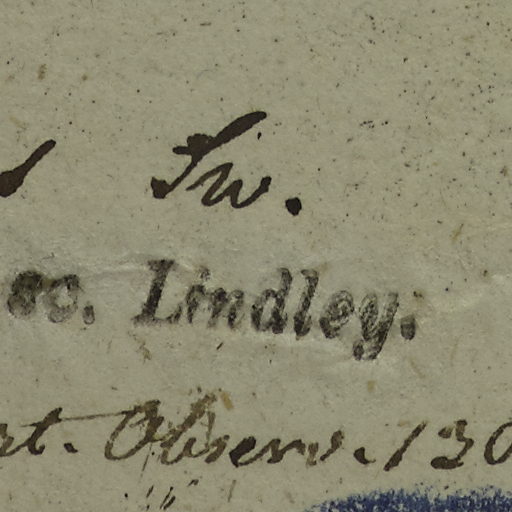 Sw.
Lindley.
Observ. 130